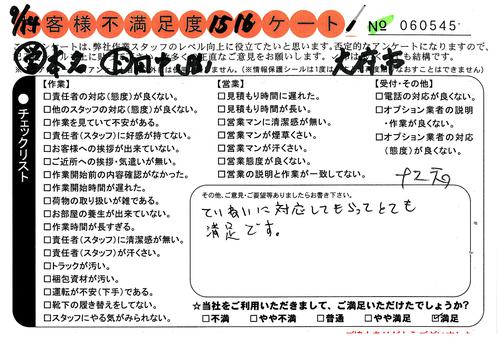 9/14 お客様不満足度1516ケート! No 060545
ンケートは、弊社作業スタッフのレベル向上に役立てたいと思います。否定的なアンケートになりますので、
チェックリスト
【作業】
□責任者の対応(態度)が良くない。
□他のスタッフの対応(態度)が良くない。
□作業を見ていて不安がある。
□責任者(スタッフ)に好感が持てない。
□お客様への挨拶が出来ていない。
□ご近所への挨拶・気遣いが無い。
□作業開始前の内容確認がなかった。
□作業開始時間が遅れた。
□荷物の取り扱いが雑である。
□お部屋の養生が出来ていない。
□作業時間が長すぎる。
□責任者(スタッフ)に清潔感が無い。
□責任者(スタッフ)が汗くさい。
□トラックが汚い。
□梱包資材が汚い。
□運転が不安(下手)である。
□靴下の履き替えをしてない。
□スタッフにやる気がみられない。
【営業】
□見積もり時間に遅れた。
□見積もり時間が長い。
□営業マンに清潔感が無い。
□営業マンが煙草くさい。
□営業マンが汗くさい。
□営業態度が良くない。
□営業の説明と作業が一致してない。
【受付・その他】
□電話の対応が良くない。
□オプション業者の説明
・作業が良くない。
□オプション業者の対応
(態度)が良くない。
その他、ご意見・ご要望等ありましたらお書き下さい。
ていねいに対応してもらってとても
満足です。
☆当社をご利用いただきまして、ご満足いただけたでしょうか?
□不満 □やや不満 □普通 □やや満足 ☑満足